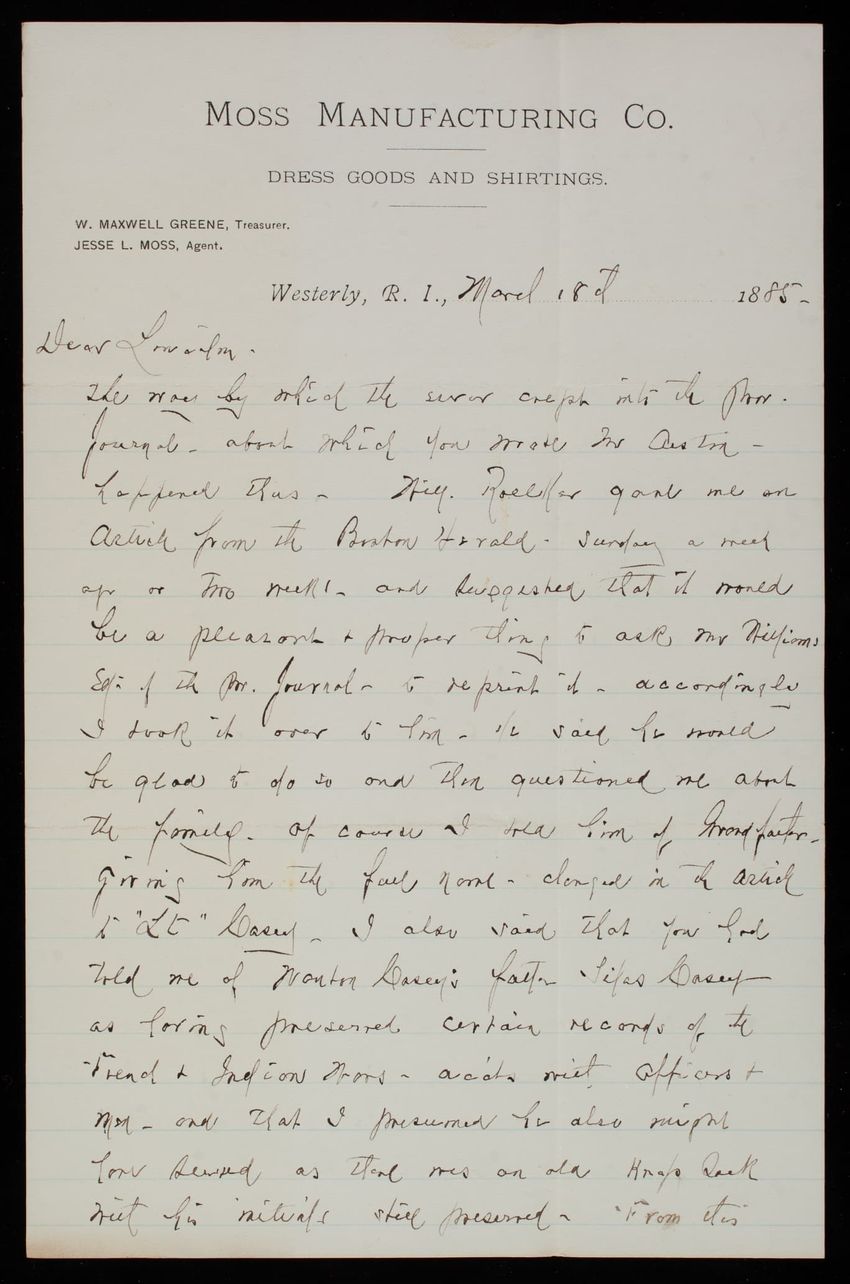 MOSS MANUFACTURING CO.
DRESS GOODS AND SHIRTINGS.
W. MAXWELL GREENE, Treasurer.
JESSE L. MOSS, Agent.
Westerly, R. I., March 18th 1885-
Dear Lincoln.
The way by which the error crept into the Prov.
Journal - about which you wrote Mr Austin -
happened thus - Wm. Roelker gave me an
Article from the Boston Herald - Sunday a week
ago or two weeks - and suggested that it would
be a pleasant & proper thing to ask Mr Williams
Edr of the Pr. Journal - to reprint it - accordingly
I took it over to him - He said he would
be glad to do so and then questioned me about
the family - of course I told him of Grandfather -
Giving him the full name - changed in the Article
to "Lt" Casey - I also said that you had
told me of Wanton Casey's father Silas Casey
as having preserved certain records of the
French & Indian Wars - accts with officers &
Men - and that I presumed he also might
have served as there was an old Knap Sack
with his initials still preserved - From this